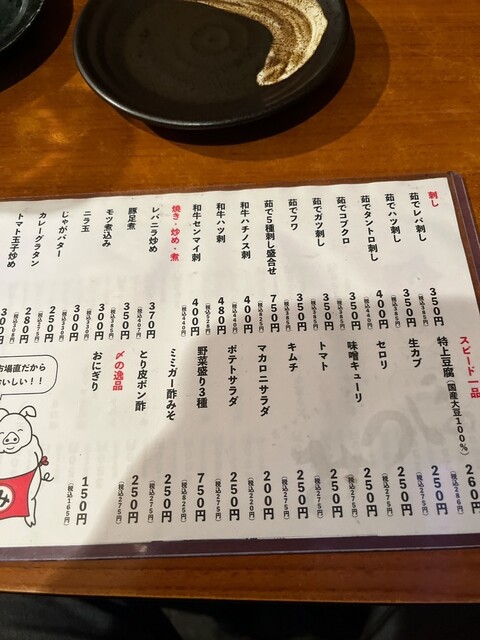 刺し
茹でレバ刺し 350円（税込385円）
茹でハツ刺し 350円（税込385円）
茹でタントロ刺し 400円（税込440円）
茹でコブクロ 350円（税込385円）
茹でガツ刺し 350円（税込385円）
茹でフワ 350円（税込385円）
茹で5種刺し盛合せ 750円（税込825円）
和牛ハチノス刺 400円（税込440円）
和牛ハツ刺 480円（税込528円）
和牛センマイ刺 400円（税込440円）
焼き・炒め・煮
レバニラ炒め 370円（税込407円）
豚足煮 350円（税込385円）
モツ煮込み 300円（税込330円）
ニラ玉 300円（税込330円）
じゃがバター 250円（税込275円）
カレーグラタン 280円（税込308円）
トマト玉子炒め 300円
スピード一品
特上豆腐（国産大豆100%） 260円（税込286円）
生カブ 250円（税込275円）
セロリ 250円（税込275円）
味噌キューリ 250円（税込275円）
トマト 250円（税込275円）
キムチ 250円（税込275円）
マカロニサラダ 200円（税込220円）
ポテトサラダ 250円（税込275円）
野菜盛り3種 750円（税込825円）
ミミガー酢みそ 250円（税込275円）
とり皮ポン酢 250円（税込275円）
〆の逸品
おにぎり 150円（税込165円）
市場直だから
おいしい！！
み